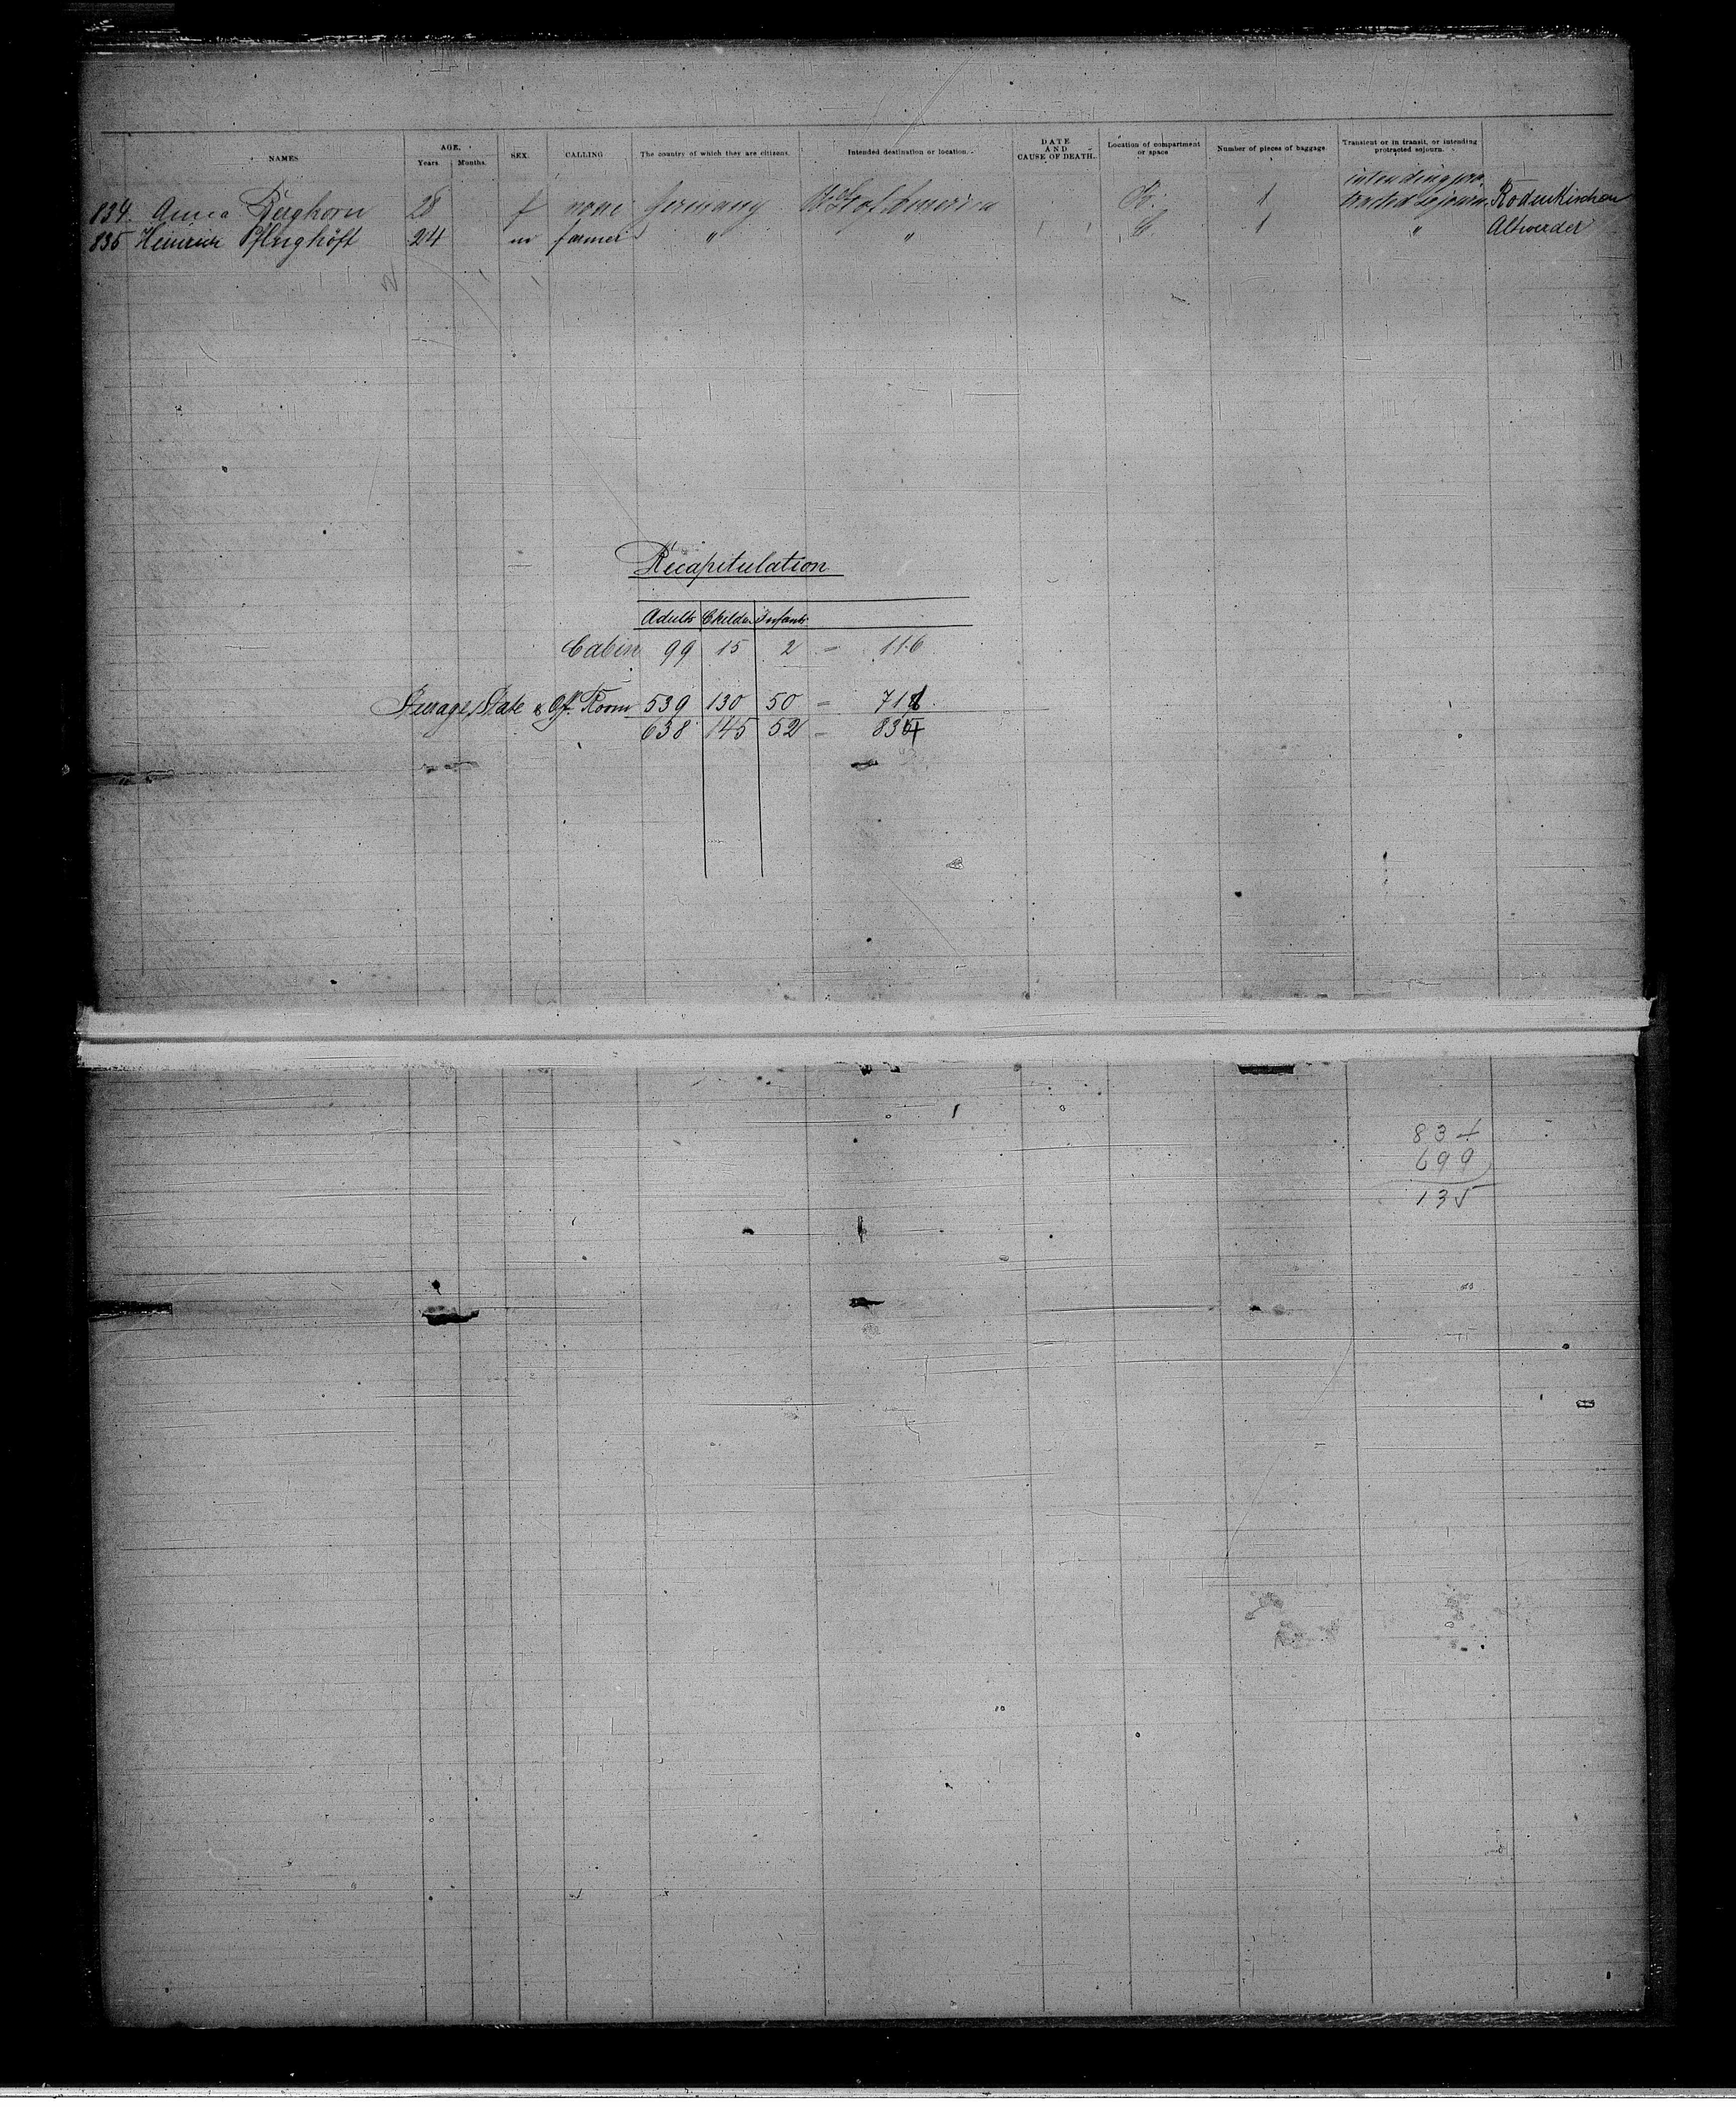 NAMES AGE. Years Months. SEX. CALLING The country of which they are citizens. Intended destination or location. DATE AND CAUSE OF DEATH. Location of compartment or space Number of pieces of baggage. Transient or in transit, or intending protracted sojourn.
intending pro-
834. Anna 28 f none Germany U. St. of America 1 tracted sojourn. Rodenkirchen
835 Heinrich Pflughöft 24 m farmer " " 1 " Altwerder
Recapitulation
Adults Childr. Infants
Cabin 99 15 2 = 116
Steerage, State & Off. Room 539 130 50 = 718
638 145 52 = 834
834
699
135